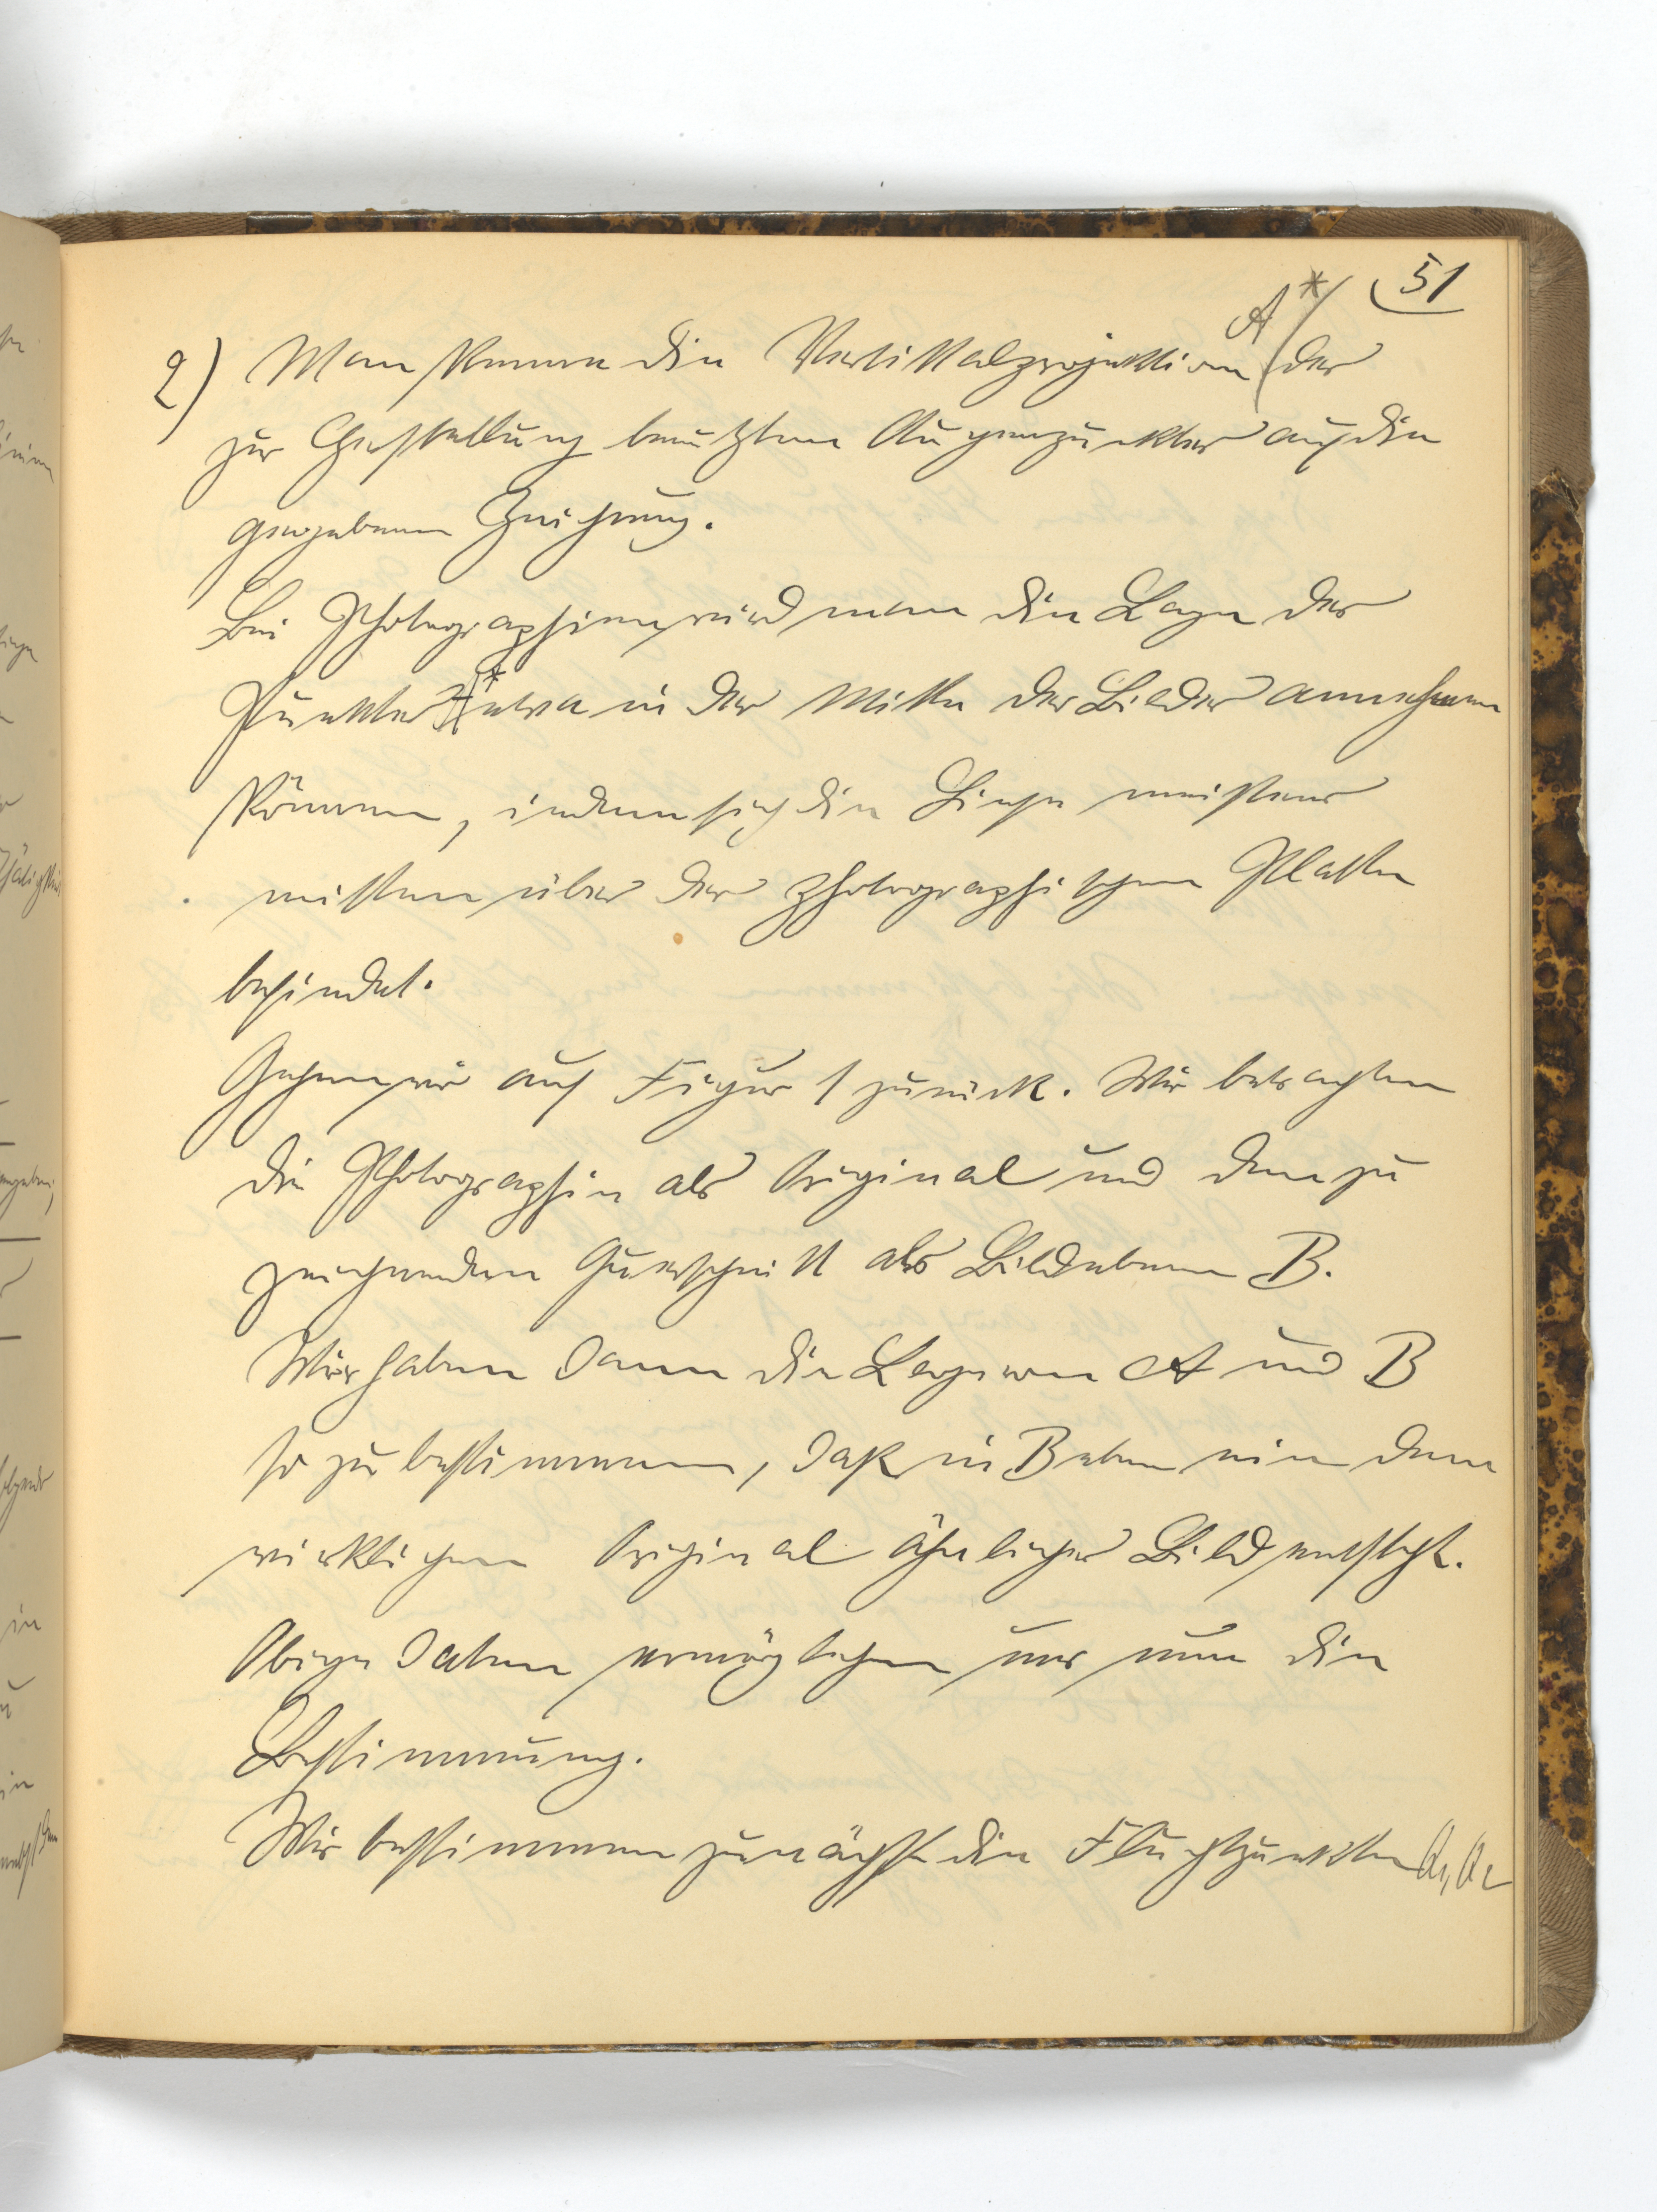 51
A*
2) Man kenne die Vertikalprojektion der
zur Herstellung benutzten Augenpunkter auf die
gegebenen Zeichnung.
Bei Photographien wird man die Lage des
Punktes A* etwa in der Mitte des Bildes annehmen
können, indem sich die Linse meistens
mitten über der photographischen Platte
befindet.
Gehen wir auf Figur 1 zurück. Wir betrachten
die Photographie als Original und den zu
zeichnenden Querschnitt als Bildebene B.
Wir haben dann die Lage von A und B
so zu bestimmen, daß in B eben ein dem
wirklichen Original ähnliches Bild entsteht.
Obige Daten ermöglichen uns nun die
Bestimmung.
Wir bestimmen zunächst die Fluchtpunkte Q1, Q2